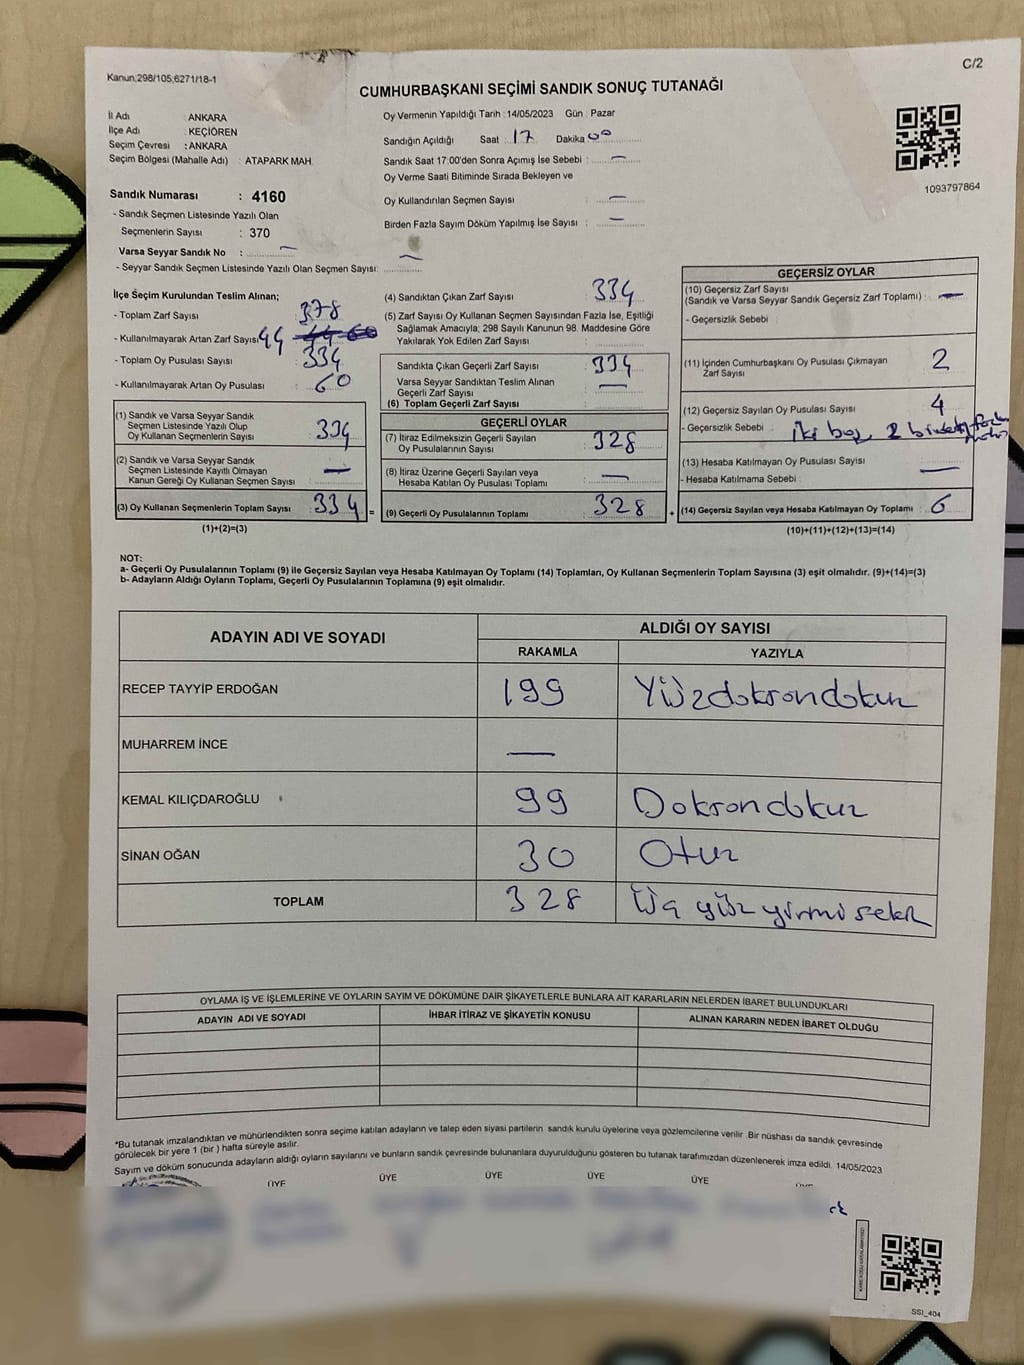 Kanun;298/105;6271/18-1
C/2
CUMHURBAŞKANI SEÇİMİ SANDIK SONUÇ TUTANAĞI
İl Adı : ANKARA
İlçe Adı : KEÇİÖREN
Seçim Çevresi : ANKARA
Seçim Bölgesi (Mahalle Adı) : ATAPARK MAH.
Oy Vermenin Yapıldığı Tarih : 14/05/2023 Gün : Pazar
Sandığın Açıldığı Saat 17 Dakika 00
Sandık Saat 17:00'den Sonra Açımış İse Sebebi : —
Oy Verme Saati Bitiminde Sırada Bekleyen ve
Oy Kullandırılan Seçmen Sayısı : —
Birden Fazla Sayım Döküm Yapılmış İse Sayısı : —
1093797864
Sandık Numarası : 4160
- Sandık Seçmen Listesinde Yazılı Olan
Seçmenlerin Sayısı : 370
Varsa Seyyar Sandık No : —
- Seyyar Sandık Seçmen Listesinde Yazılı Olan Seçmen Sayısı: —
İlçe Seçim Kurulundan Teslim Alınan;
- Toplam Zarf Sayısı : 378
- Kullanılmayarak Artan Zarf Sayısı : 44
- Toplam Oy Pusulası Sayısı : 334
- Kullanılmayarak Artan Oy Pusulası : 60
(1) Sandık ve Varsa Seyyar Sandık
Seçmen Listesinde Yazılı Olup
Oy Kullanan Seçmenlerin Sayısı : 334
(2) Sandık ve Varsa Seyyar Sandık
Seçmen Listesinde Kayıtlı Olmayan
Kanun Gereği Oy Kullanan Seçmen Sayısı : —
(3) Oy Kullanan Seçmenlerin Toplam Sayısı : 334 =
(1)+(2)=(3)
(4) Sandıktan Çıkan Zarf Sayısı : 334
(5) Zarf Sayısı Oy Kullanan Seçmen Sayısından Fazla İse, Eşitliği
Sağlamak Amacıyla; 298 Sayılı Kanunun 98. Maddesine Göre
Yakılarak Yok Edilen Zarf Sayısı :
Sandıkta Çıkan Geçerli Zarf Sayısı : 334
Varsa Seyyar Sandıktan Teslim Alınan
Geçerli Zarf Sayısı : —
(6) Toplam Geçerli Zarf Sayısı :
GEÇERLİ OYLAR
(7) İtiraz Edilmeksizin Geçerli Sayılan
Oy Pusulalarının Sayısı : 328
(8) İtiraz Üzerine Geçerli Sayılan veya
Hesaba Katılan Oy Pusulası Toplamı : —
(9) Geçerli Oy Pusulalarının Toplamı : 328 +
GEÇERSİZ OYLAR
(10) Geçersiz Zarf Sayısı
(Sandık ve Varsa Seyyar Sandık Geçersiz Zarf Toplamı) : —
- Geçersizlik Sebebi :
(11) İçinden Cumhurbaşkanı Oy Pusulası Çıkmayan
Zarf Sayısı : 2
(12) Geçersiz Sayılan Oy Pusulası Sayısı : 4
- Geçersizlik Sebebi : iki boş, 2 birden fazla
(13) Hesaba Katılmayan Oy Pusulası Sayısı : —
- Hesaba Katılmama Sebebi :
(14) Geçersiz Sayılan veya Hesaba Katılmayan Oy Toplamı : 6
(10)+(11)+(12)+(13)=(14)
NOT:
a- Geçerli Oy Pusulalarının Toplamı (9) ile Geçersiz Sayılan veya Hesaba Katılmayan Oy Toplamı (14) Toplamları, Oy Kullanan Seçmenlerin Toplam Sayısına (3) eşit olmalıdır. (9)+(14)=(3)
b- Adayların Aldığı Oyların Toplamı, Geçerli Oy Pusulalarının Toplamına (9) eşit olmalıdır.
ADAYIN ADI VE SOYADI
ALDIĞI OY SAYISI
RAKAMLA YAZIYLA
RECEP TAYYİP ERDOĞAN 199 Yüzdoksondokuz
MUHARREM İNCE —
KEMAL KILIÇDAROĞLU 99 Doksondokuz
SİNAN OĞAN 30 Otuz
TOPLAM 328 Üç yüz yirmi sekiz
OYLAMA İŞ VE İŞLEMLERİNE VE OYLARIN SAYIM VE DÖKÜMÜNE DAİR ŞİKAYETLERLE BUNLARA AİT KARARLARIN NELERDEN İBARET BULUNDUKLARI
ADAYIN ADI VE SOYADI İHBAR İTİRAZ VE ŞİKAYETİN KONUSU ALINAN KARARIN NEDEN İBARET OLDUĞU
*Bu tutanak imzalandıktan ve mühürlendikten sonra seçime katılan adayların ve talep eden siyasi partilerin sandık kurulu üyelerine veya gözlemcilerine verilir. Bir nüshası da sandık çevresinde
görülecek bir yere 1 (bir) hafta süreyle asılır.
Sayım ve döküm sonucunda adayların aldığı oyların sayılarını ve bunların sandık çevresinde bulunanlara duyurulduğunu gösteren bu tutanak tarafımızdan düzenlenerek imza edildi. 14/05/2023
ÜYE ÜYE ÜYE ÜYE ÜYE
SSI_404